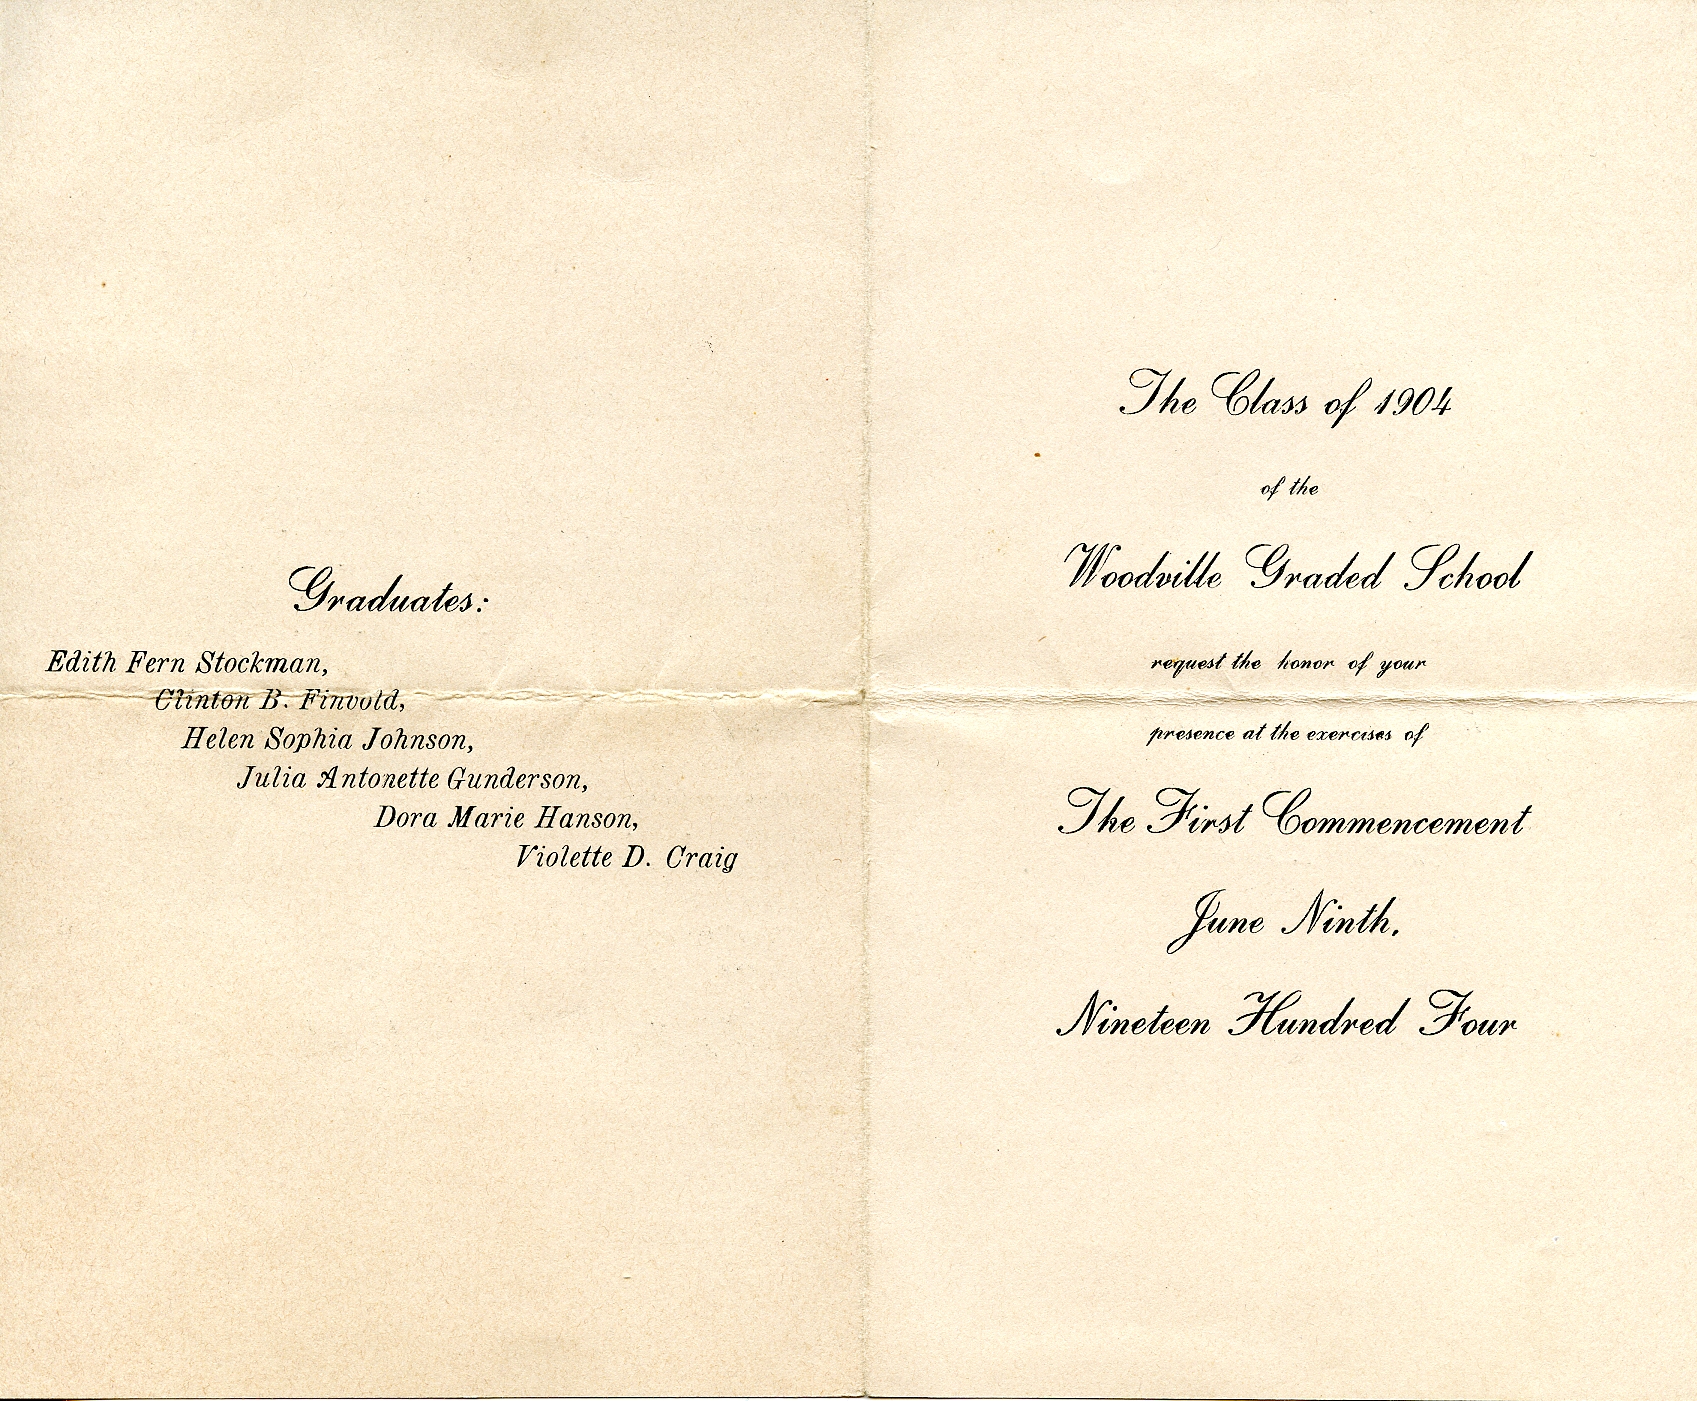 Graduates:
Edith Fern Stockman,
Clinton B. Finvold,
Helen Sophia Johnson,
Julia Antonette Gunderson,
Dora Marie Hanson,
Violette D. Craig
The Class of 1904
of the
Woodville Graded School
request the honor of your
presence at the exercises of
The First Commencement
June Ninth,
Nineteen Hundred Four